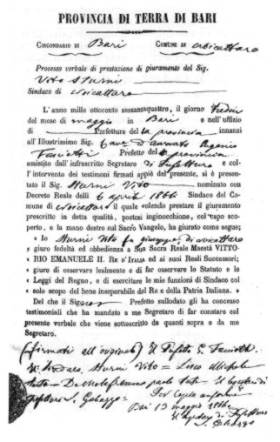 PROVINCIA DI TERRA DI BARI
CIRCONDARIO DI Bari COMUNE DI Noicattaro
Processo verbale di prestazione di giuramento del Sig.
Vito Sturni
Sindaco di Noicattaro
L'anno mille ottocento sessantaquattro, il giorno Tredici
del mese di maggio in Bari e nell'uffizio
di Prefettura della provincia innanzi
all'Illustrissimo Sig. Cav.
Prefetto della provincia
assistito dall'infrascritto Segretario di Prefettura e col-
l'intervento dei testimoni appiè del presente, si è presen-
tato il Sig. Sturni Vito nominato con
Decreto Reale delli 6 aprile 1864 Sindaco del Comu-
ne di Noicattaro il quale volendo prestare il giuramento
prescritto in detta qualità, postosi inginocchione, col capo sco-
perto, e la mano destra sul Sacro Vangelo, ha giurato come segue:
« Io Sturni Vito fu Giuseppe, di Noicattaro
giuro fedeltà ed obbedienza a Sua Sacra Reale Maestà VITTO-
RIO EMANUELE II. Re d'Italia ed ai suoi Reali Successori;
giuro di osservare lealmente e di far osservare lo Statuto e le
Leggi del Regno, e di esercitare le mie funzioni di Sindaco col
solo scopo del bene inseparabile del Re e della Patria Italiana.
Del che il Signor Prefetto sullodato gli ha concesso
testimoniali che ha mandato a me Segretario di far constare col
presente verbale che viene sottoscritto da quanti sopra e da me
Segretario.
(firmati all'originale) Il Prefetto
Il Sindaco, Sturni Vito =
Il Segretario di
Prefettura
Per copia conforme
Bari 13 maggio 1864
Il Segretario di Prefettura